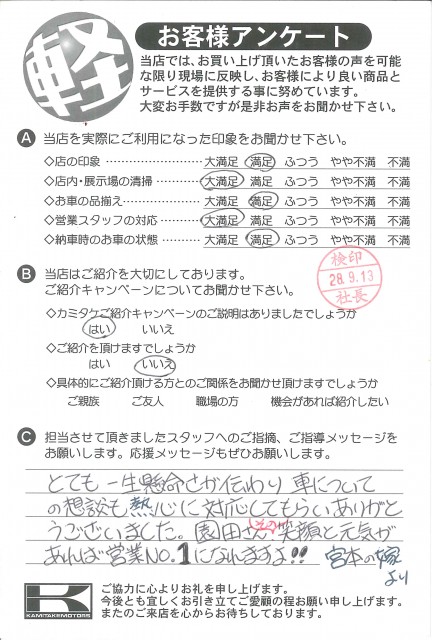 軽
お客様アンケート
当店では、お買い上げ頂いたお客様の声を可能
な限り現場に反映し、お客様により良い商品と
サービスを提供する事に努めています。
大変お手数ですが是非お声をお聞かせ下さい。
A 当店を実際にご利用になった印象をお聞かせ下さい。
◇店の印象 ………………… 大満足 満足 ふつう やや不満 不満
◇店内・展示場の清掃………… 大満足 満足 ふつう やや不満 不満
◇お車の品揃え……………… 大満足 満足 ふつう やや不満 不満
◇営業スタッフの対応………… 大満足 満足 ふつう やや不満 不満
◇納車時のお車の状態………… 大満足 満足 ふつう やや不満 不満
検印
28.9.13
社長
B 当店はご紹介を大切にしております。
ご紹介キャンペーンについてお聞かせ下さい。
◇カミタケご紹介キャンペーンのご説明はありましたでしょうか
はい いいえ
◇ご紹介を頂けますでしょうか
はい いいえ
◇具体的にご紹介頂ける方とのご関係をお聞かせ頂けますでしょうか
ご親族 ご友人 職場の方 機会があれば紹介したい
C 担当させて頂きましたスタッフへのご指摘、ご指導メッセージを
お願いします。応援メッセージもぜひお願いします。
とても一生懸命さが伝わり 車について
の想談も熱心に対応してもらいありがと
うございました。園田さん その 笑顔と元気が
あれば営業No.1になれますよ!! 宮本の嫁
より
K
KAMITAKEMOTORS
ご協力に心よりお礼を申し上げます。
今後とも宜しくお引き立てご愛顧の程お願い申し上げます。
またのご来店を心からお待ちしております。